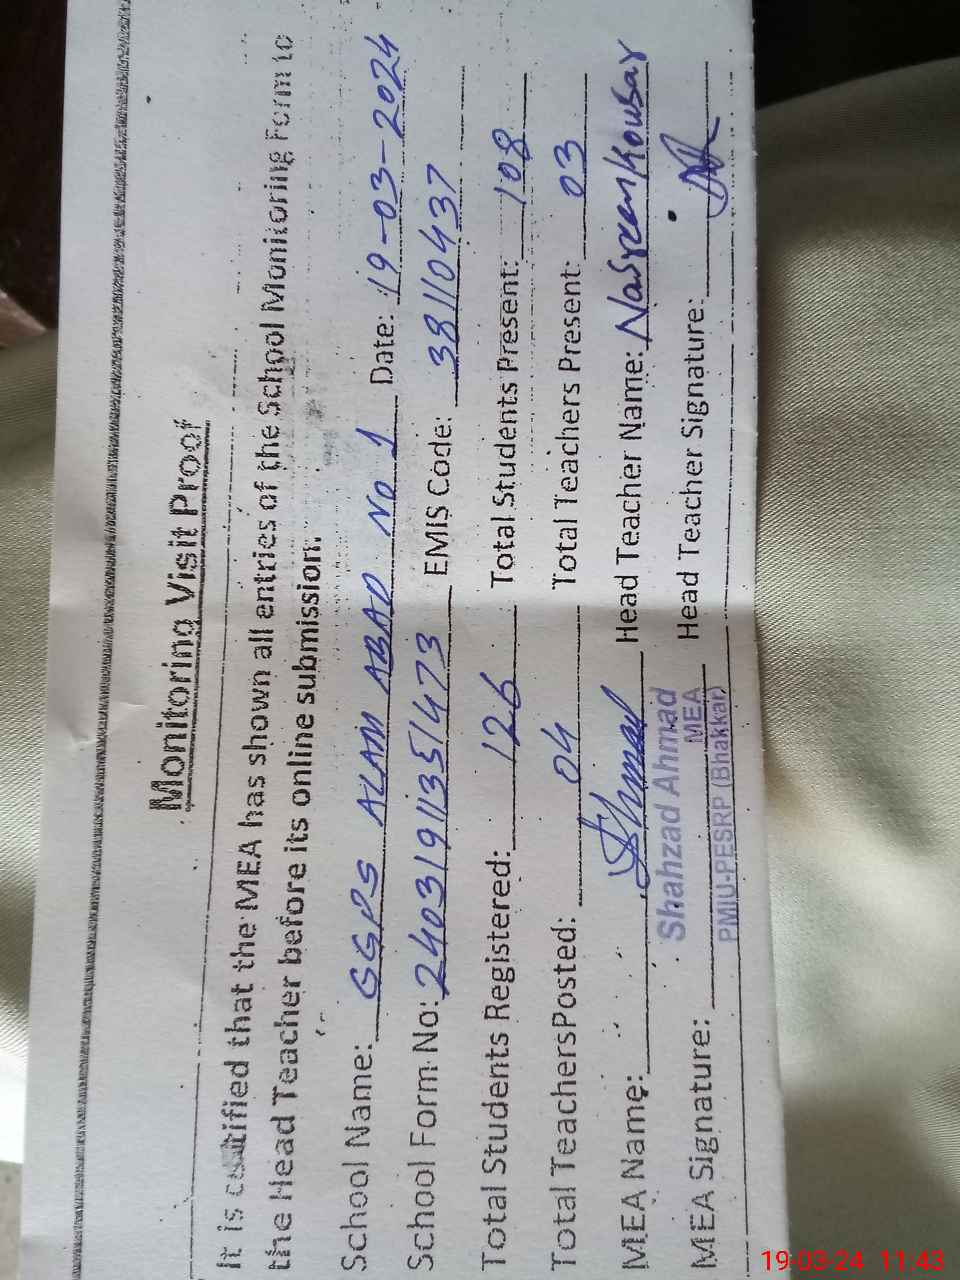 Monitoring Visit Proof
It is certified that the MEA has shown all entries of the School Monitoring Form to
the Head Teacher before its online submission.
School Name: GGPS ALAM ABAD No 1 Date: 19-03-2024
School Form No: 24031911351473 EMIS Code: 38110437
Total Students Registered: 126 Total Students Present: 108
Total Teachers Posted: 04 Total Teachers Present: 03
MEA Name: Head Teacher Name: Nasreen Kousar
Shahzad Ahmad
MEA
PMIU-PESRP (Bhakkar)
MEA Signature: Head Teacher Signature:
19-03-24 11:43